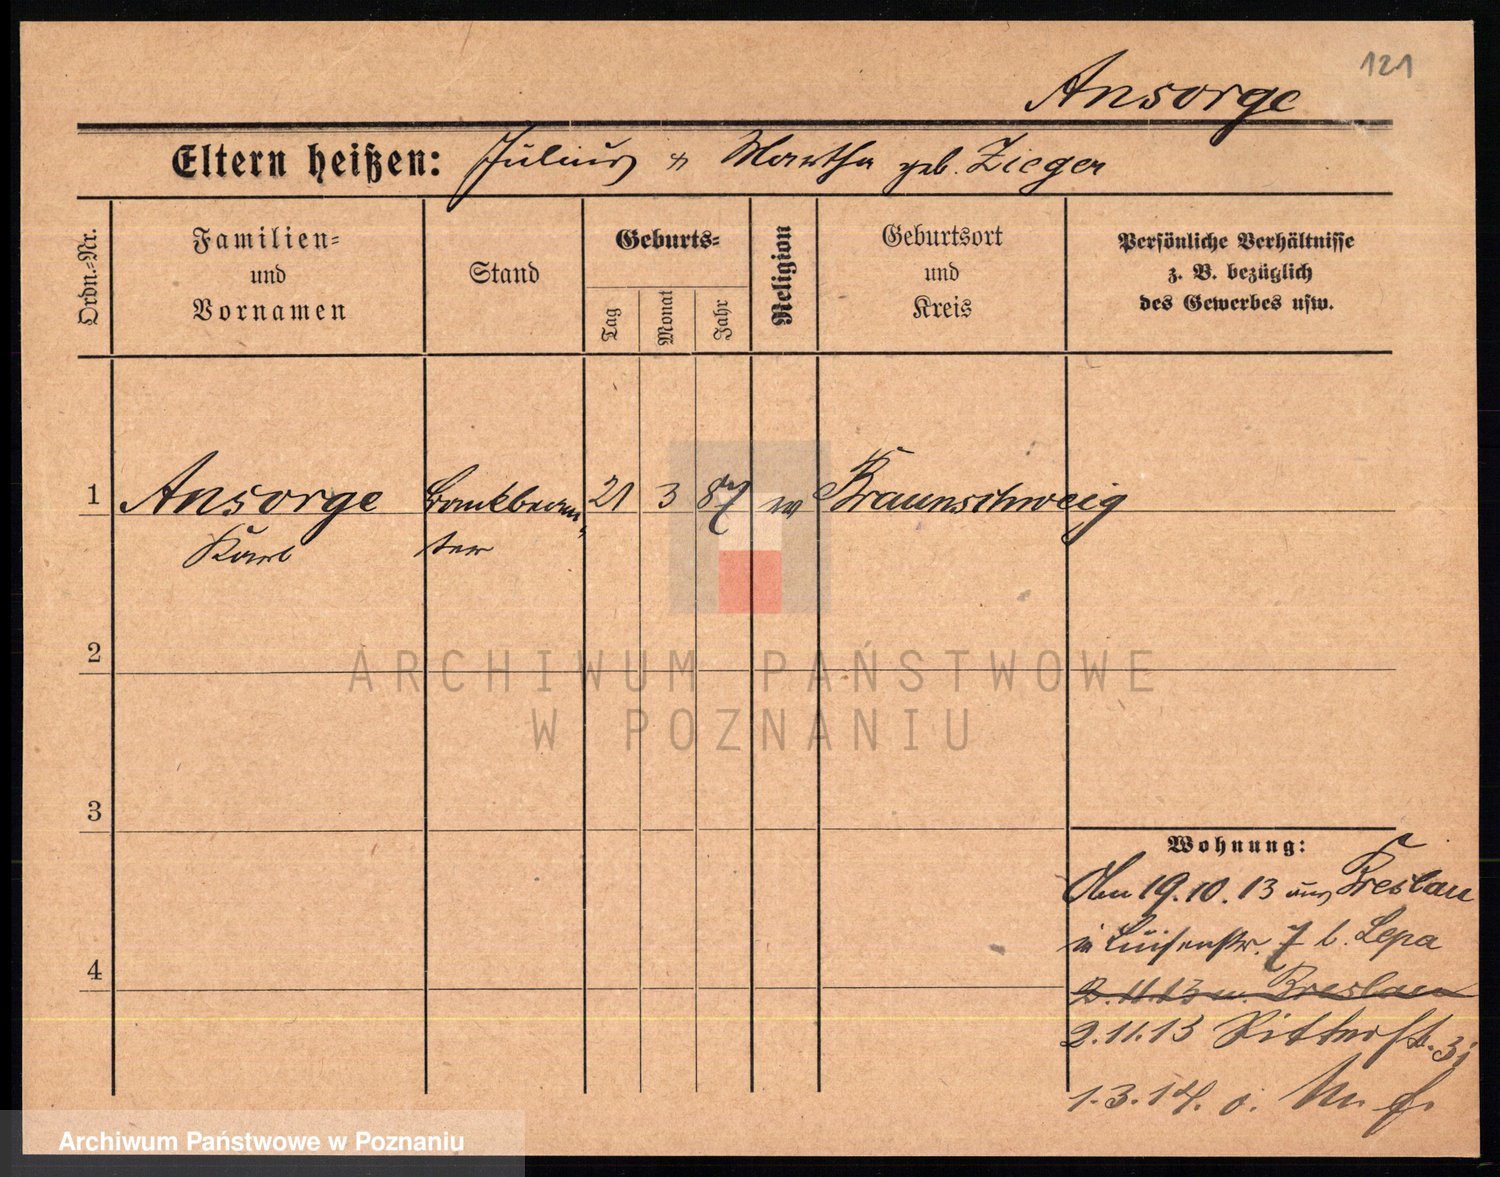 121
Ansorge
Eltern heißen: Julius u Martha geb. Zieger
Ordn.-Nr.
Familien-
und
Vornamen
Stand
Geburts-
Tag
Monat
Jahr
Religion
Geburtsort
und
Kreis
Persönliche Verhältnisse
z. B. bezüglich
des Gewerbes usw.
1 Ansorge Bankbeam- 21 3 87 Braunschweig
Karl ter
2
3
4
ARCHIWUM PAŃSTWOWE
W POZNANIU
Wohnung:
Am 19.10.13 aus Breslau
in Luisenstr. 7 b. Lepa
2.11.13 n. Breslau
2.11.13 Ritterstr.
1.3.14.
Archiwum Państwowe w Poznaniu